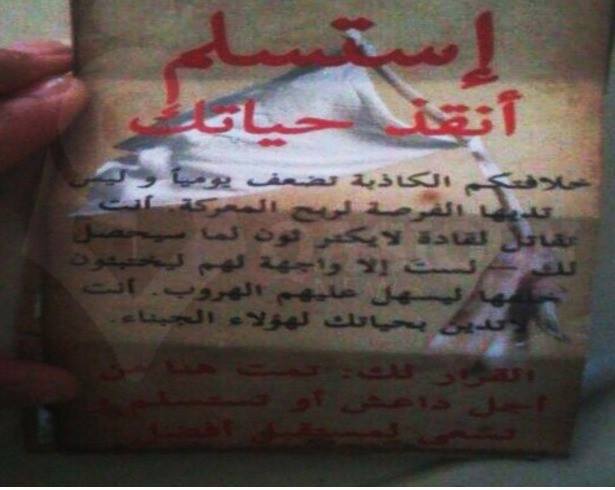 إستسلم
أنقذ حياتك
خلافتكم الكاذبة تضعف يومياً و ليس
لديها الفرصة لربح المعركة. أنت
تقاتل لقادة لايكترثون لما سيحصل
لك – لست إلا واجهة لهم ليختبئون
خلفها ليسهل عليهم الهروب. أنت
لاتدين بحياتك لهؤلاء الجبناء.
القرار لك: تمت هنا من
أجل داعش أو تستسلم و
تسعى لمستقبل أفضل